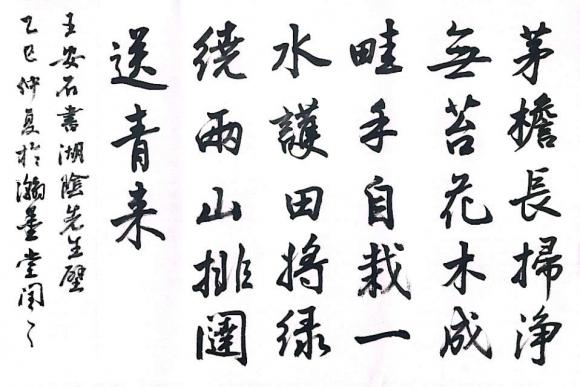 茅檐長掃淨
無苔花木成
畦手自栽一
水護田將绿
繞兩山排闥
送青来
王安石書湖陰先生壁
乙巳仲夏於瀚墨堂